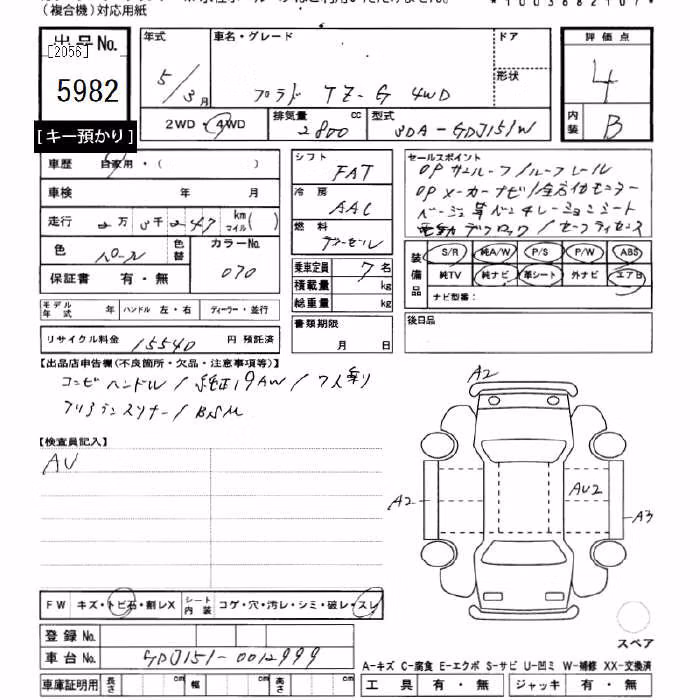 （複合機）対応用紙
出品No. 年式 車名・グレード ドア 評価点
[2056]
5982 5/3月 プラド TZ-G 4WD 形状 4
[キー預かり] 2WD・4WD 排気量 2800 cc 型式 3DA-GDJ151W 内装 B
車歴 自家用・( ) シフト FAT セールスポイント
OP サンルーフ/ルーフレール
車検 年 月 冷房 AAC OP メーカーナビ/全方位モニター
走行 2万3千247 km マイル( ) ベージュ革ベンチレーションシート
燃料 電動デフロック/セーフティセンス
色 パール 色替 カラーNo. 070 乗車定員 7名 装備品 S/R 純A/W P/S P/W ABS
保証書 有・無 積載量 kg 純TV 純ナビ 革シート 外ナビ エアB
総重量 kg ナビ型番：
モデル年式 年 ハンドル 左・右 ディーラー・並行
書類期限 年 月 日 後日品
リサイクル料金 15540 円 預託済
【出品店申告欄(不良箇所・欠品・注意事項等)】
コンビハンドル/純正19AW/7人乗り
クリアランスソナー/BSM
A2
【検査員記入】
AV
A2 AU2 A3
FW キズ・トビ石・割レX シート内装 コゲ・穴・汚レ・シミ・破レ・スレ
スペア
登録No.
車台No. GDJ151-0012999
A-キズ C-腐食 E-エクボ S-サビ U-凹ミ W-補修 XX-交換済
車庫証明用 長さ cm 幅 cm 高さ cm 工具 有・無 ジャッキ 有・無